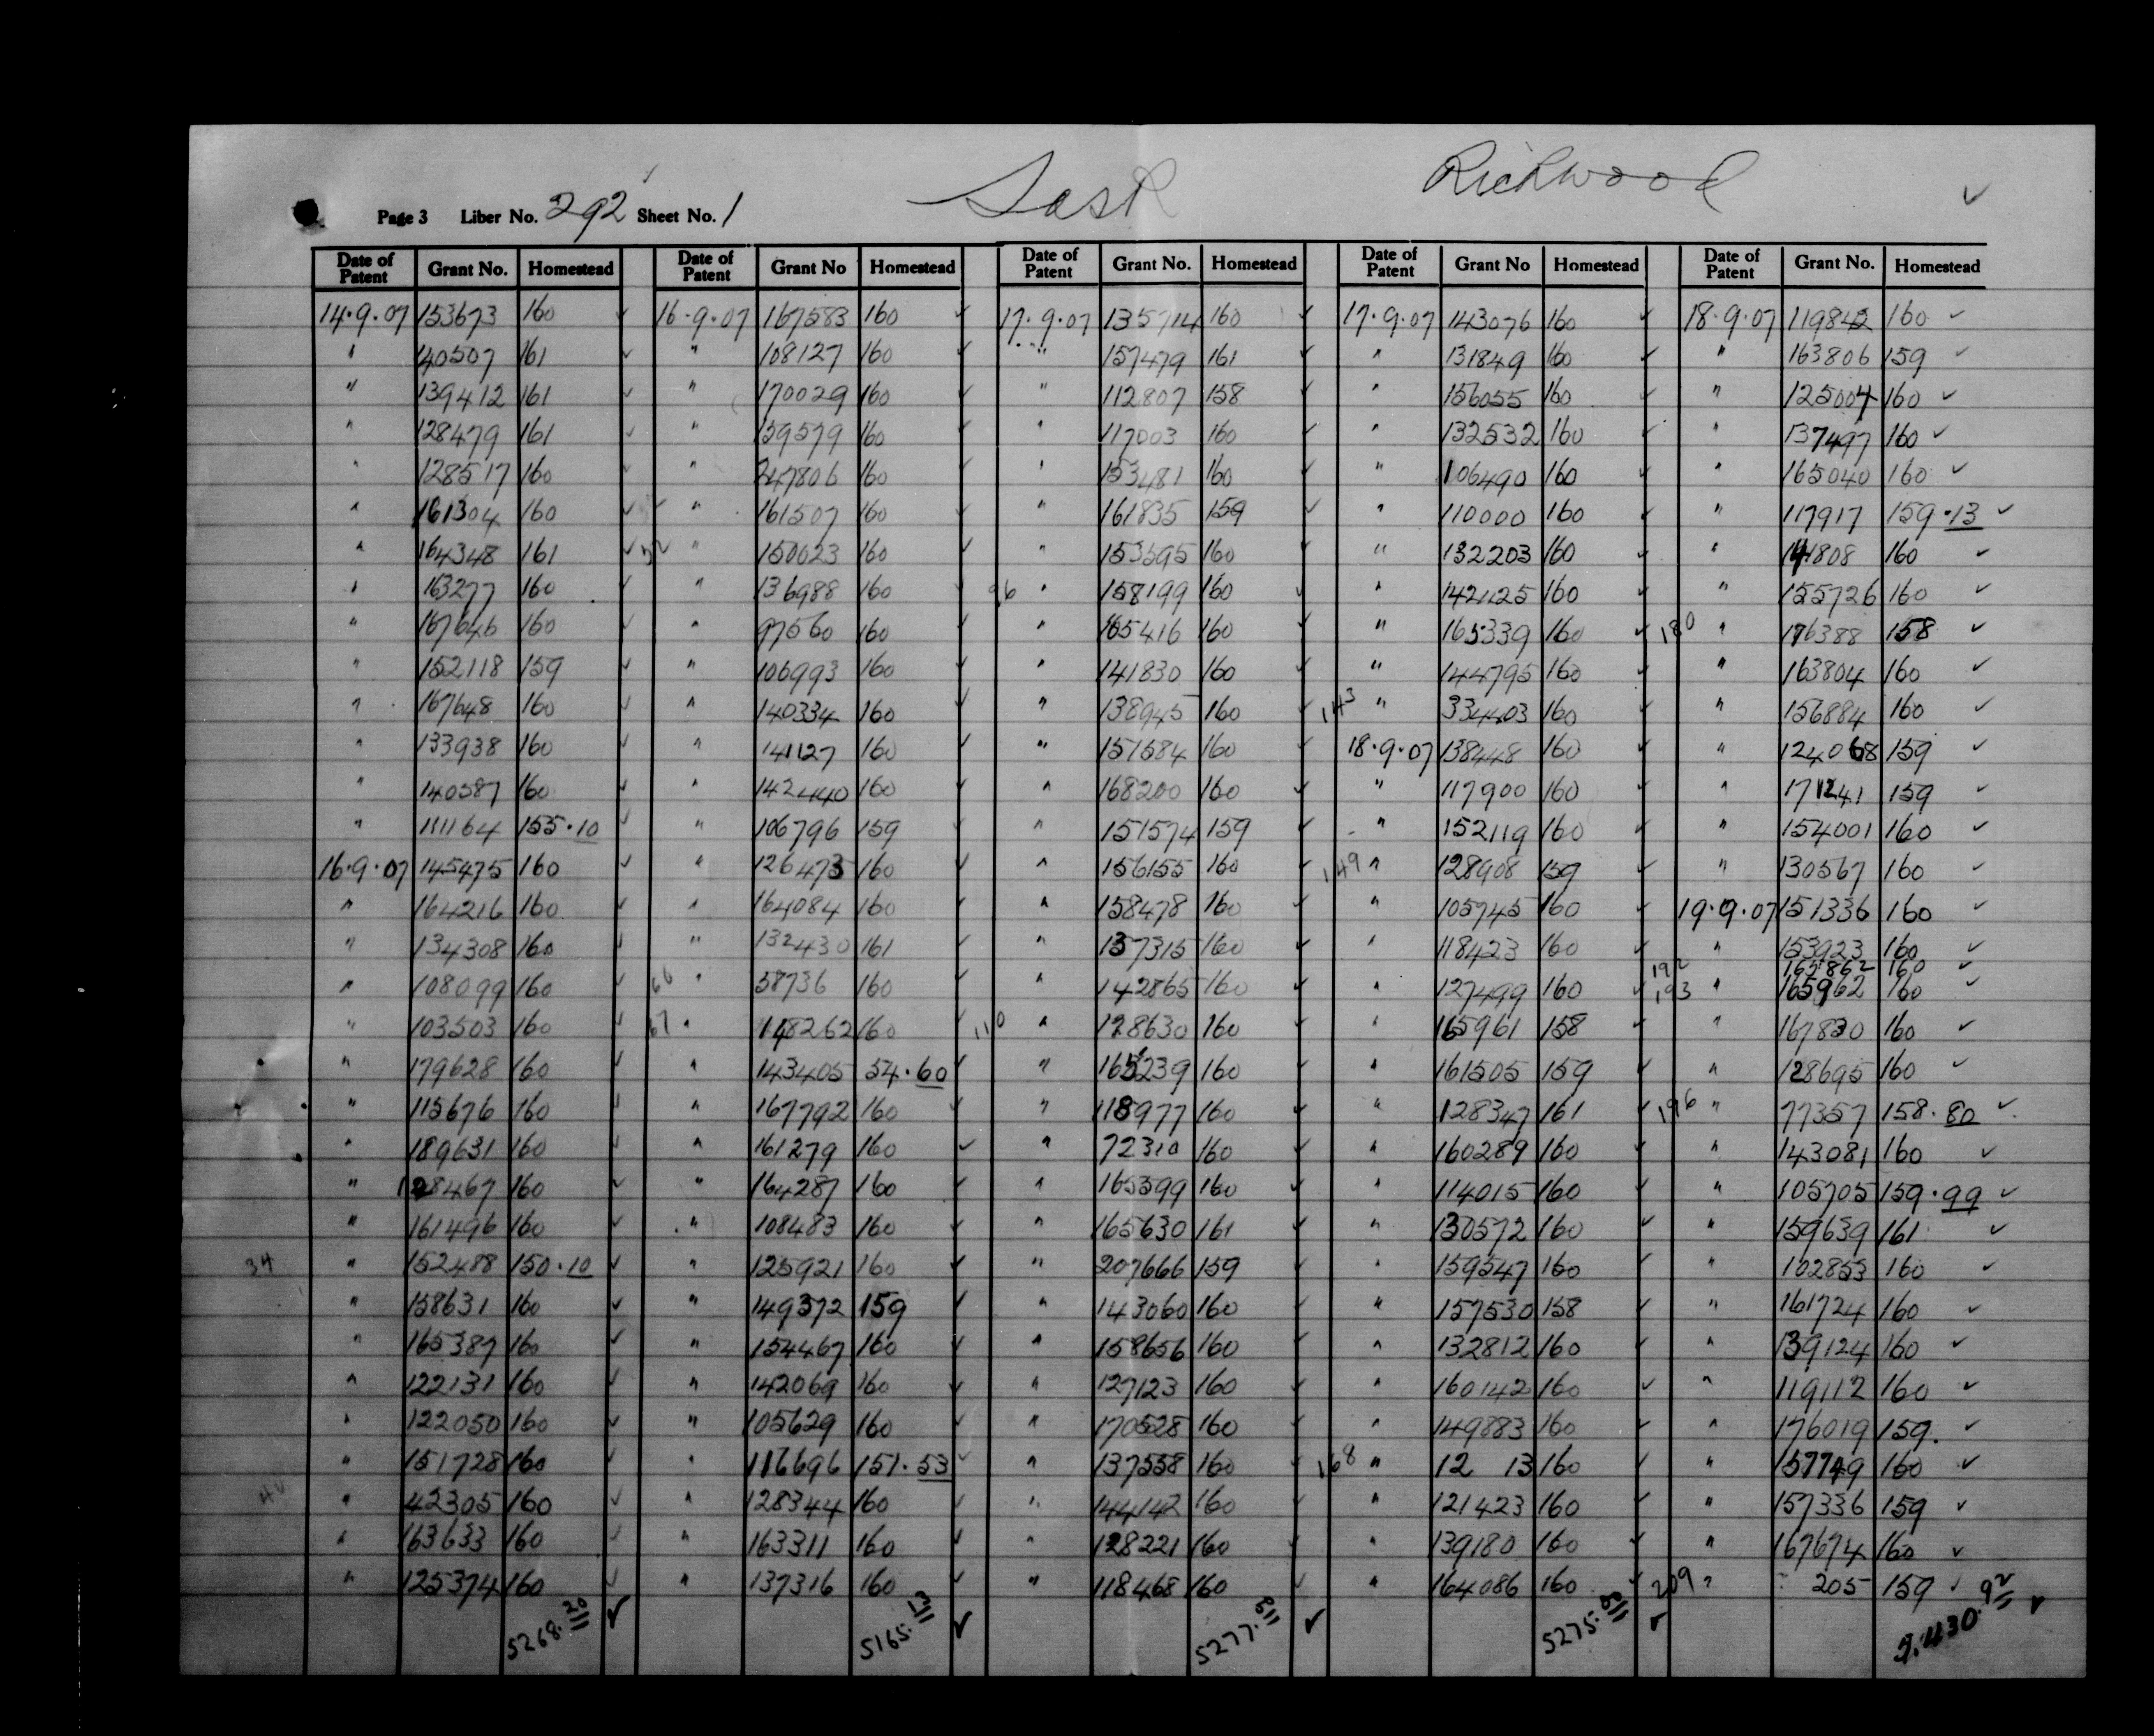 Sask Richwood
Page 3 Liber No. 292 Sheet No. 1
Date of Patent Grant No. Homestead Date of Patent Grant No Homestead Date of Patent Grant No. Homestead Date of Patent Grant No Homestead Date of Patent Grant No. Homestead
14.9.07 153673 160 ✓ 16.9.07 167583 160 ✓ 17.9.07 135714 160 ✓ 17.9.07 143076 160 ✓ 18.9.07 119842 160 ✓
" 40507 161 ✓ " 108127 160 ✓ " 157479 161 ✓ " 131849 160 ✓ " 163806 159 ✓
" 139412 161 ✓ " 170029 160 ✓ " 112807 158 ✓ " 156055 160 ✓ " 125004 160 ✓
" 128479 161 ✓ " 139579 160 ✓ " 117003 160 ✓ " 132532 160 ✓ " 137497 160 ✓
" 128517 160 ✓ " 247806 160 ✓ " 153481 160 ✓ " 106490 160 ✓ " 165040 160 ✓
" 161304 160 ✓ " 161507 160 ✓ " 161835 159 ✓ " 110000 160 ✓ " 117917 159.13 ✓
" 164348 161 ✓ " 150023 160 ✓ " 153595 160 ✓ " 132203 160 ✓ " 141808 160 ✓
" 163277 160 ✓ " 136988 160 ✓ 96 " 158199 160 ✓ " 142125 160 ✓ " 155726 160 ✓
" 167646 160 ✓ " 97560 160 ✓ " 165416 160 ✓ " 165339 160 ✓ 180 " 176388 158 ✓
" 152118 159 ✓ " 106993 160 ✓ " 141830 160 ✓ " 144795 160 ✓ " 163804 160 ✓
" 167648 160 ✓ " 140334 160 ✓ " 138945 160 ✓ 143 " 334403 160 ✓ " 156884 160 ✓
" 133938 160 ✓ " 141127 160 ✓ " 157584 160 ✓ 18.9.07 138448 160 ✓ " 124068 159 ✓
" 140587 160 ✓ " 142440 160 ✓ " 168200 160 ✓ " 117900 160 ✓ " 171241 159 ✓
" 111164 155.10 ✓ " 106796 159 ✓ " 151574 159 ✓ " 152119 160 ✓ " 154001 160 ✓
16.9.07 145475 160 ✓ " 126473 160 ✓ " 156155 160 ✓ 149 " 128908 159 ✓ " 130567 160 ✓
" 164216 160 ✓ " 164084 160 ✓ " 158478 160 ✓ " 105745 160 ✓ 19.9.07 151336 160 ✓
" 134308 160 ✓ " 132430 161 ✓ " 137315 160 ✓ " 118423 160 ✓ " 153923 160 ✓
192 165862 160 ✓
" 108099 160 ✓ 66 " 58736 160 ✓ " 142865 160 ✓ " 127499 160 ✓ 193 " 165962 160 ✓
" 103503 160 ✓ 67 " 148262 160 ✓ 110 " 128630 160 ✓ " 165961 158 ✓ " 167830 160 ✓
" 179628 160 ✓ " 143405 54.60 ✓ " 165239 160 ✓ " 161505 159 ✓ " 128695 160 ✓
" 115676 160 ✓ " 167792 160 ✓ " 118977 160 ✓ " 128347 161 ✓ 196 " 77357 158.80 ✓
" 189631 160 ✓ " 161279 160 ✓ " 72310 160 ✓ " 160289 160 ✓ " 143081 160 ✓
" 128467 160 ✓ " 164287 160 ✓ " 165599 160 ✓ " 114015 160 ✓ " 105705 159.99 ✓
" 161496 160 ✓ " 108483 160 ✓ " 165630 161 ✓ " 130572 160 ✓ " 159639 161 ✓
34 " 152488 150.10 ✓ " 125921 160 ✓ " 207666 159 ✓ " 159547 160 ✓ " 102853 160 ✓
" 158631 160 ✓ " 149372 159 ✓ " 143060 160 ✓ " 157530 158 ✓ " 161724 160 ✓
" 165387 160 ✓ " 154467 160 ✓ " 158656 160 ✓ " 132812 160 ✓ " 139124 160 ✓
" 122131 160 ✓ " 142069 160 ✓ " 127123 160 ✓ " 160142 160 ✓ " 119112 160 ✓
" 122050 160 ✓ " 105629 160 ✓ " 170528 160 ✓ " 149883 160 ✓ " 176019 159 ✓
" 151728 160 ✓ " 116696 151.53 ✓ " 137558 160 ✓ 168 " 12 13 160 ✓ " 157749 160 ✓
40 " 42305 160 ✓ " 128344 160 ✓ " 144142 160 ✓ " 121423 160 ✓ " 157336 159 ✓
" 163633 160 ✓ " 163311 160 ✓ " 128221 160 ✓ " 139180 160 ✓ " 167674 160 ✓
" 125374 160 ✓ " 137316 160 ✓ " 118468 160 ✓ " 164086 160 ✓ 209 " 205 159 ✓
5268.20 ✓ 5165.13 ✓ 5277. ✓ 5275. ✓ 92 ✓